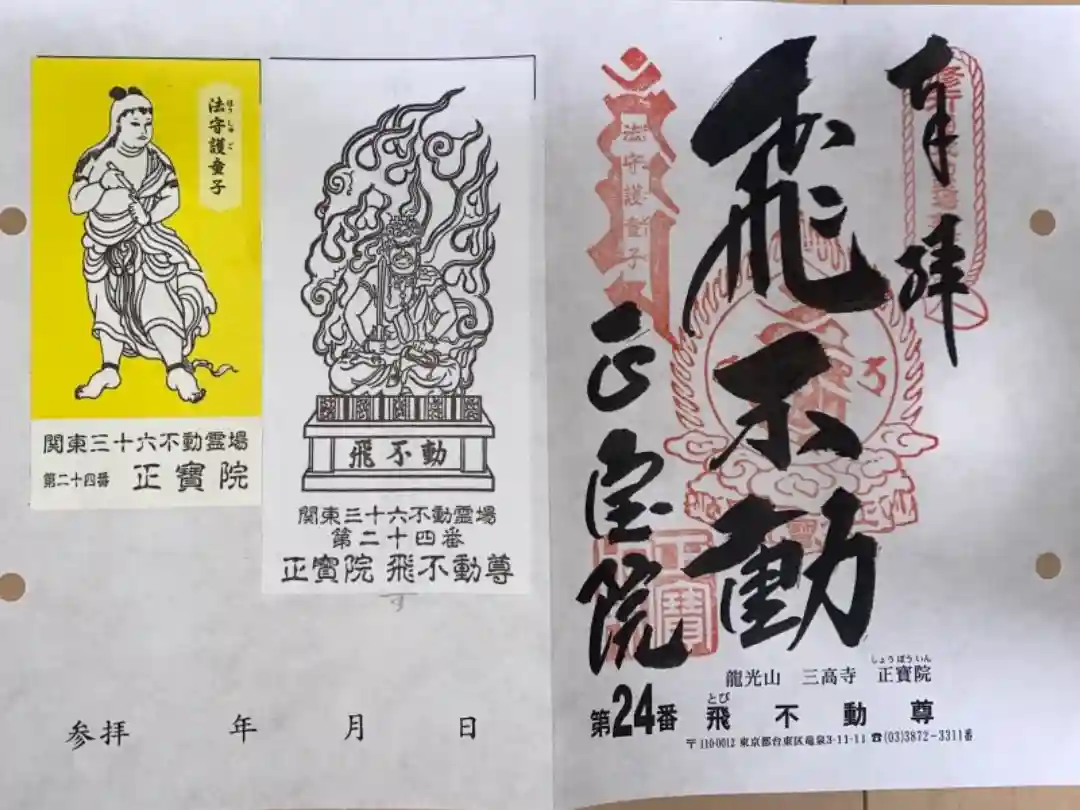 法守護童子
ほうしゅご
関東三十六不動霊場
第二十四番 正寶院
飛不動
関東三十六不動霊場
第二十四番
正寳院 飛不動尊
参拝 年 月 日
奉拝
飛不動
正宝院
法守護童子
正寶
龍光山 三高寺 正寶院
しょうぼういん
第24番 飛不動尊
とび
〒110-0012 東京都台東区竜泉3-11-11 ☎(03)3872-3311番